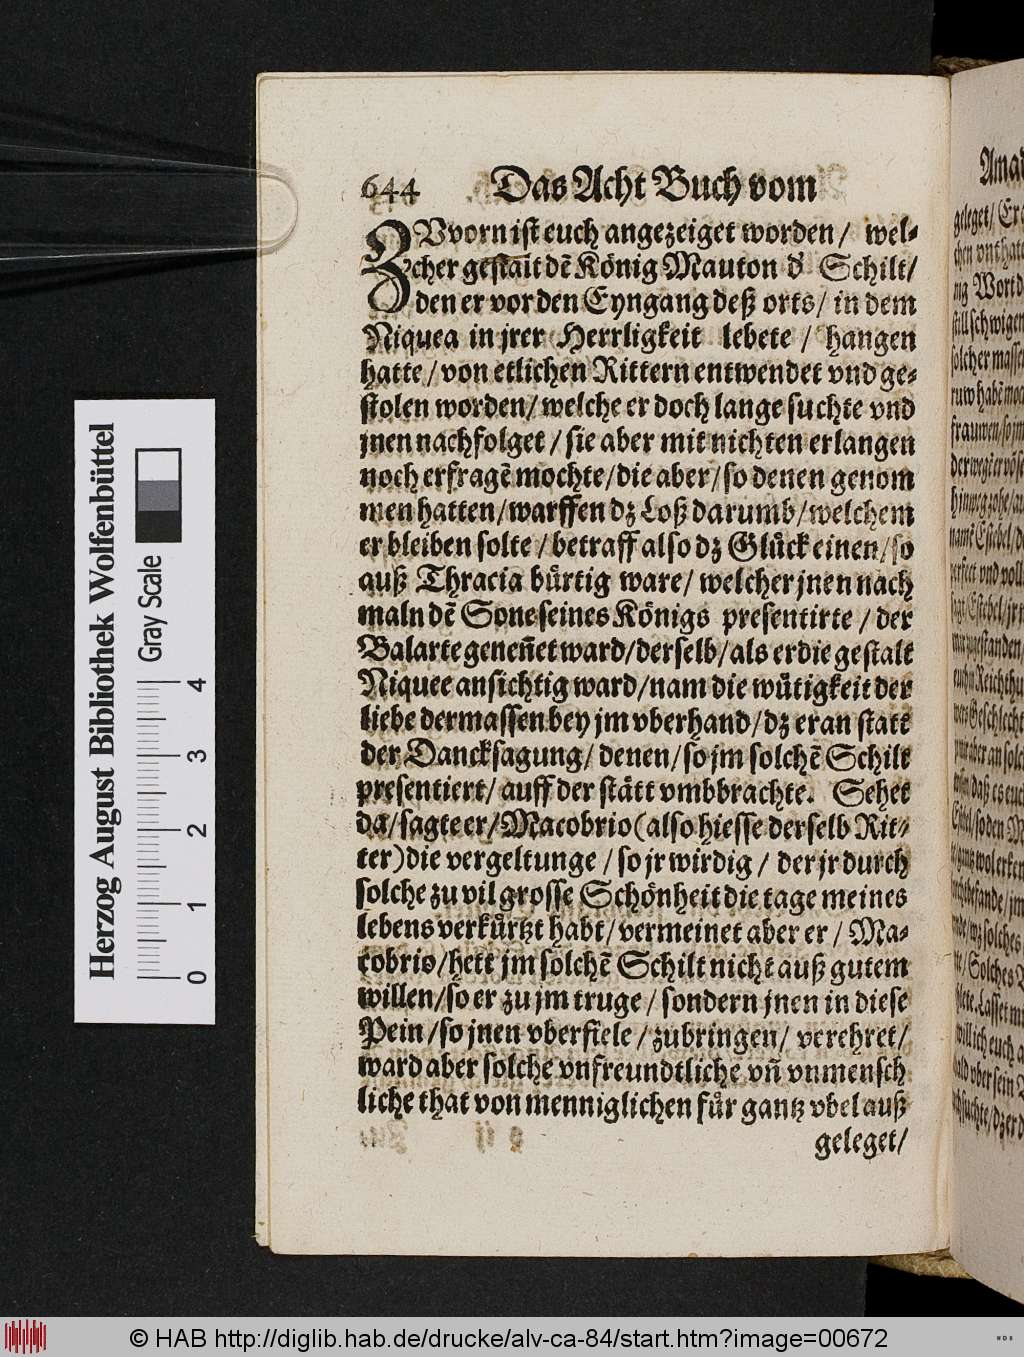 644 Das Acht Buch vom
ZVvorn ist euch angezeiget worden / wel-
cher gestalt dẽ König Mauton d' Schilt /
den er vor den Eyngang deß orts / in dem
Niquea in jrer Herrligkeit lebete / hangen
hatte / von etlichen Rittern entwendet vnd ge-
stolen worden / welche er doch lange suchte vnd
jnen nachfolget / sie aber mit nichten erlangen
noch erfragẽ mochte / die aber / so denen genom
men hatten / warffen dz Loß darumb / welchem
er bleiben solte / betraff also dz Glůck einen / so
auß Thracia bůrtig ware / welcher jnen nach
maln dẽ Sone seines Königs presentirte / der
Balarte geneñet ward / derselb / als er die gestalt
Niquee ansichtig ward / nam die wůtigkeit der
liebe dermassen bey jm vberhand / dz er an statt
der Dancksagung / denen / so jm solchẽ Schilt
presentiert / auff der stätt vmbbrachte. Sehet
da / sagte er / Macobrio (also hiesse derselb Rit-
ter) die vergeltunge / so jr wirdig / der jr durch
solche zu vil grosse Schönheit die tage meines
lebens verkůrtzt habt / vermeinet aber er / Ma-
cobrio / hett jm solchẽ Schilt nicht auß gutem
willen / so er zu jm truge / sondern jnen in diese
Pein / so jnen vberfiele / zubringen / verehret /
ward aber solche vnfreundtliche vñ vnmensch
liche that von menniglichen fůr gantz vbel auß
geleget /
Herzog August Bibliothek Wolfenbüttel
Gray Scale
0 1 2 3 4
© HAB http://diglib.hab.de/drucke/alv-ca-84/start.htm?image=00672